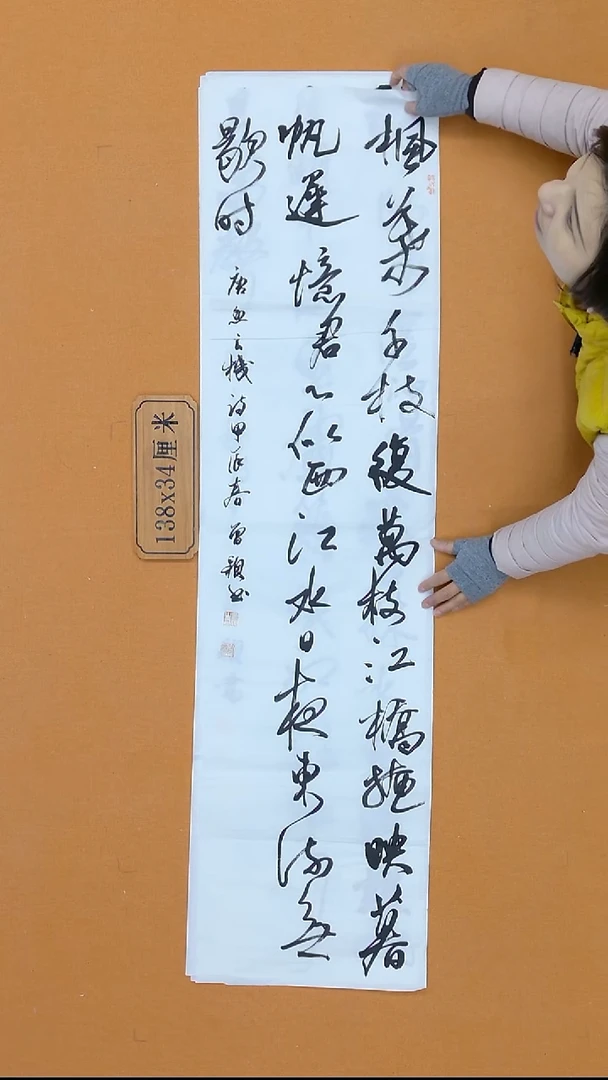 楓葉千枝復萬枝江橋掩映暮
帆遲憶君心似西江水日夜東流無
歇时
唐魚玄機詩甲辰春曾穎书
138x34厘米